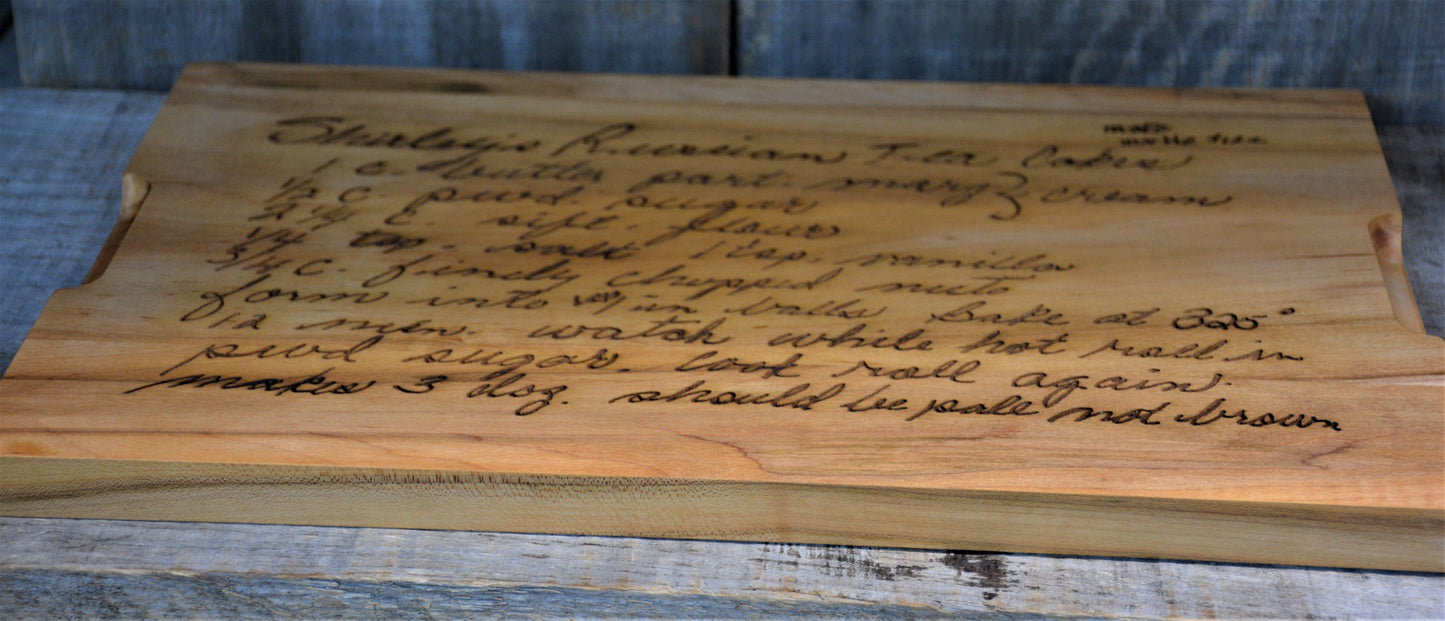 Shirley's Russian Tea Cakes
make
marble size
1 c. butter part. marg } cream
1/2 c. pwd. sugar
2 1/4 c. sift. flour
1/4 tsp. salt 1 tsp. vanilla
3/4 c. finely chopped nuts
form into in balls bake at 325°
12 min. watch while hot roll in
pwd sugar. cool roll again.
makes 3 doz. should be pale not brown